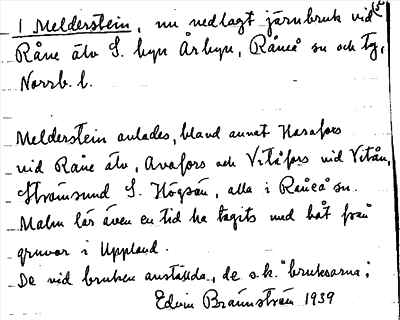 1 Melderstein, nu nedlagt järnbruk vid
Råne älv S. byn Årbyn, Råneå sn och tg,
Norrb. l.
Melderstein anlades, bland annat Harafors
vid Råne älv, Avafors och Vitåfors vid Vitån,
Strömsund S. Högsön, alla i Råneå sn.
Malm lär även en tid ha tagits med båt från
gruvor i Uppland.
De vid bruken anställda, de s.k. "brukerarna",
Edvin Brännström 1939